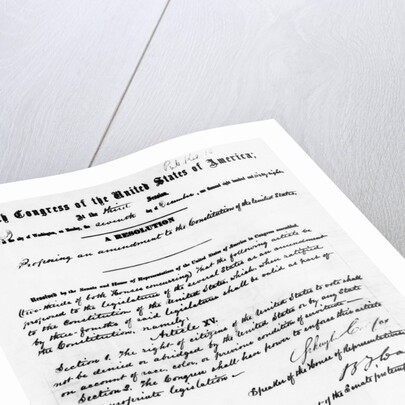 h Congress of the United States of America;
At the third Session,
A RESOLUTION
Proposing an amendment to the Constitution of the United States.
Resolved by the Senate and House of Representatives of the United States of America in Congress assembled,
(two-thirds of both Houses concurring) That the following article be
proposed to the legislatures of the several States as an amendment
to the Constitution of the United States, which, when ratified
by three-fourths of said legislatures shall be valid as part of
the Constitution, namely:
Article XV.
Section 1. The right of citizens of the United States to vote shall
not be denied or abridged by the United States or by any State
on account of race, color, or previous condition of servitude—
Section 2. The Congress shall have power to enforce this article
propriate legislation—
Schuyler C
Speaker of the House of Representatives
of the Senate protem